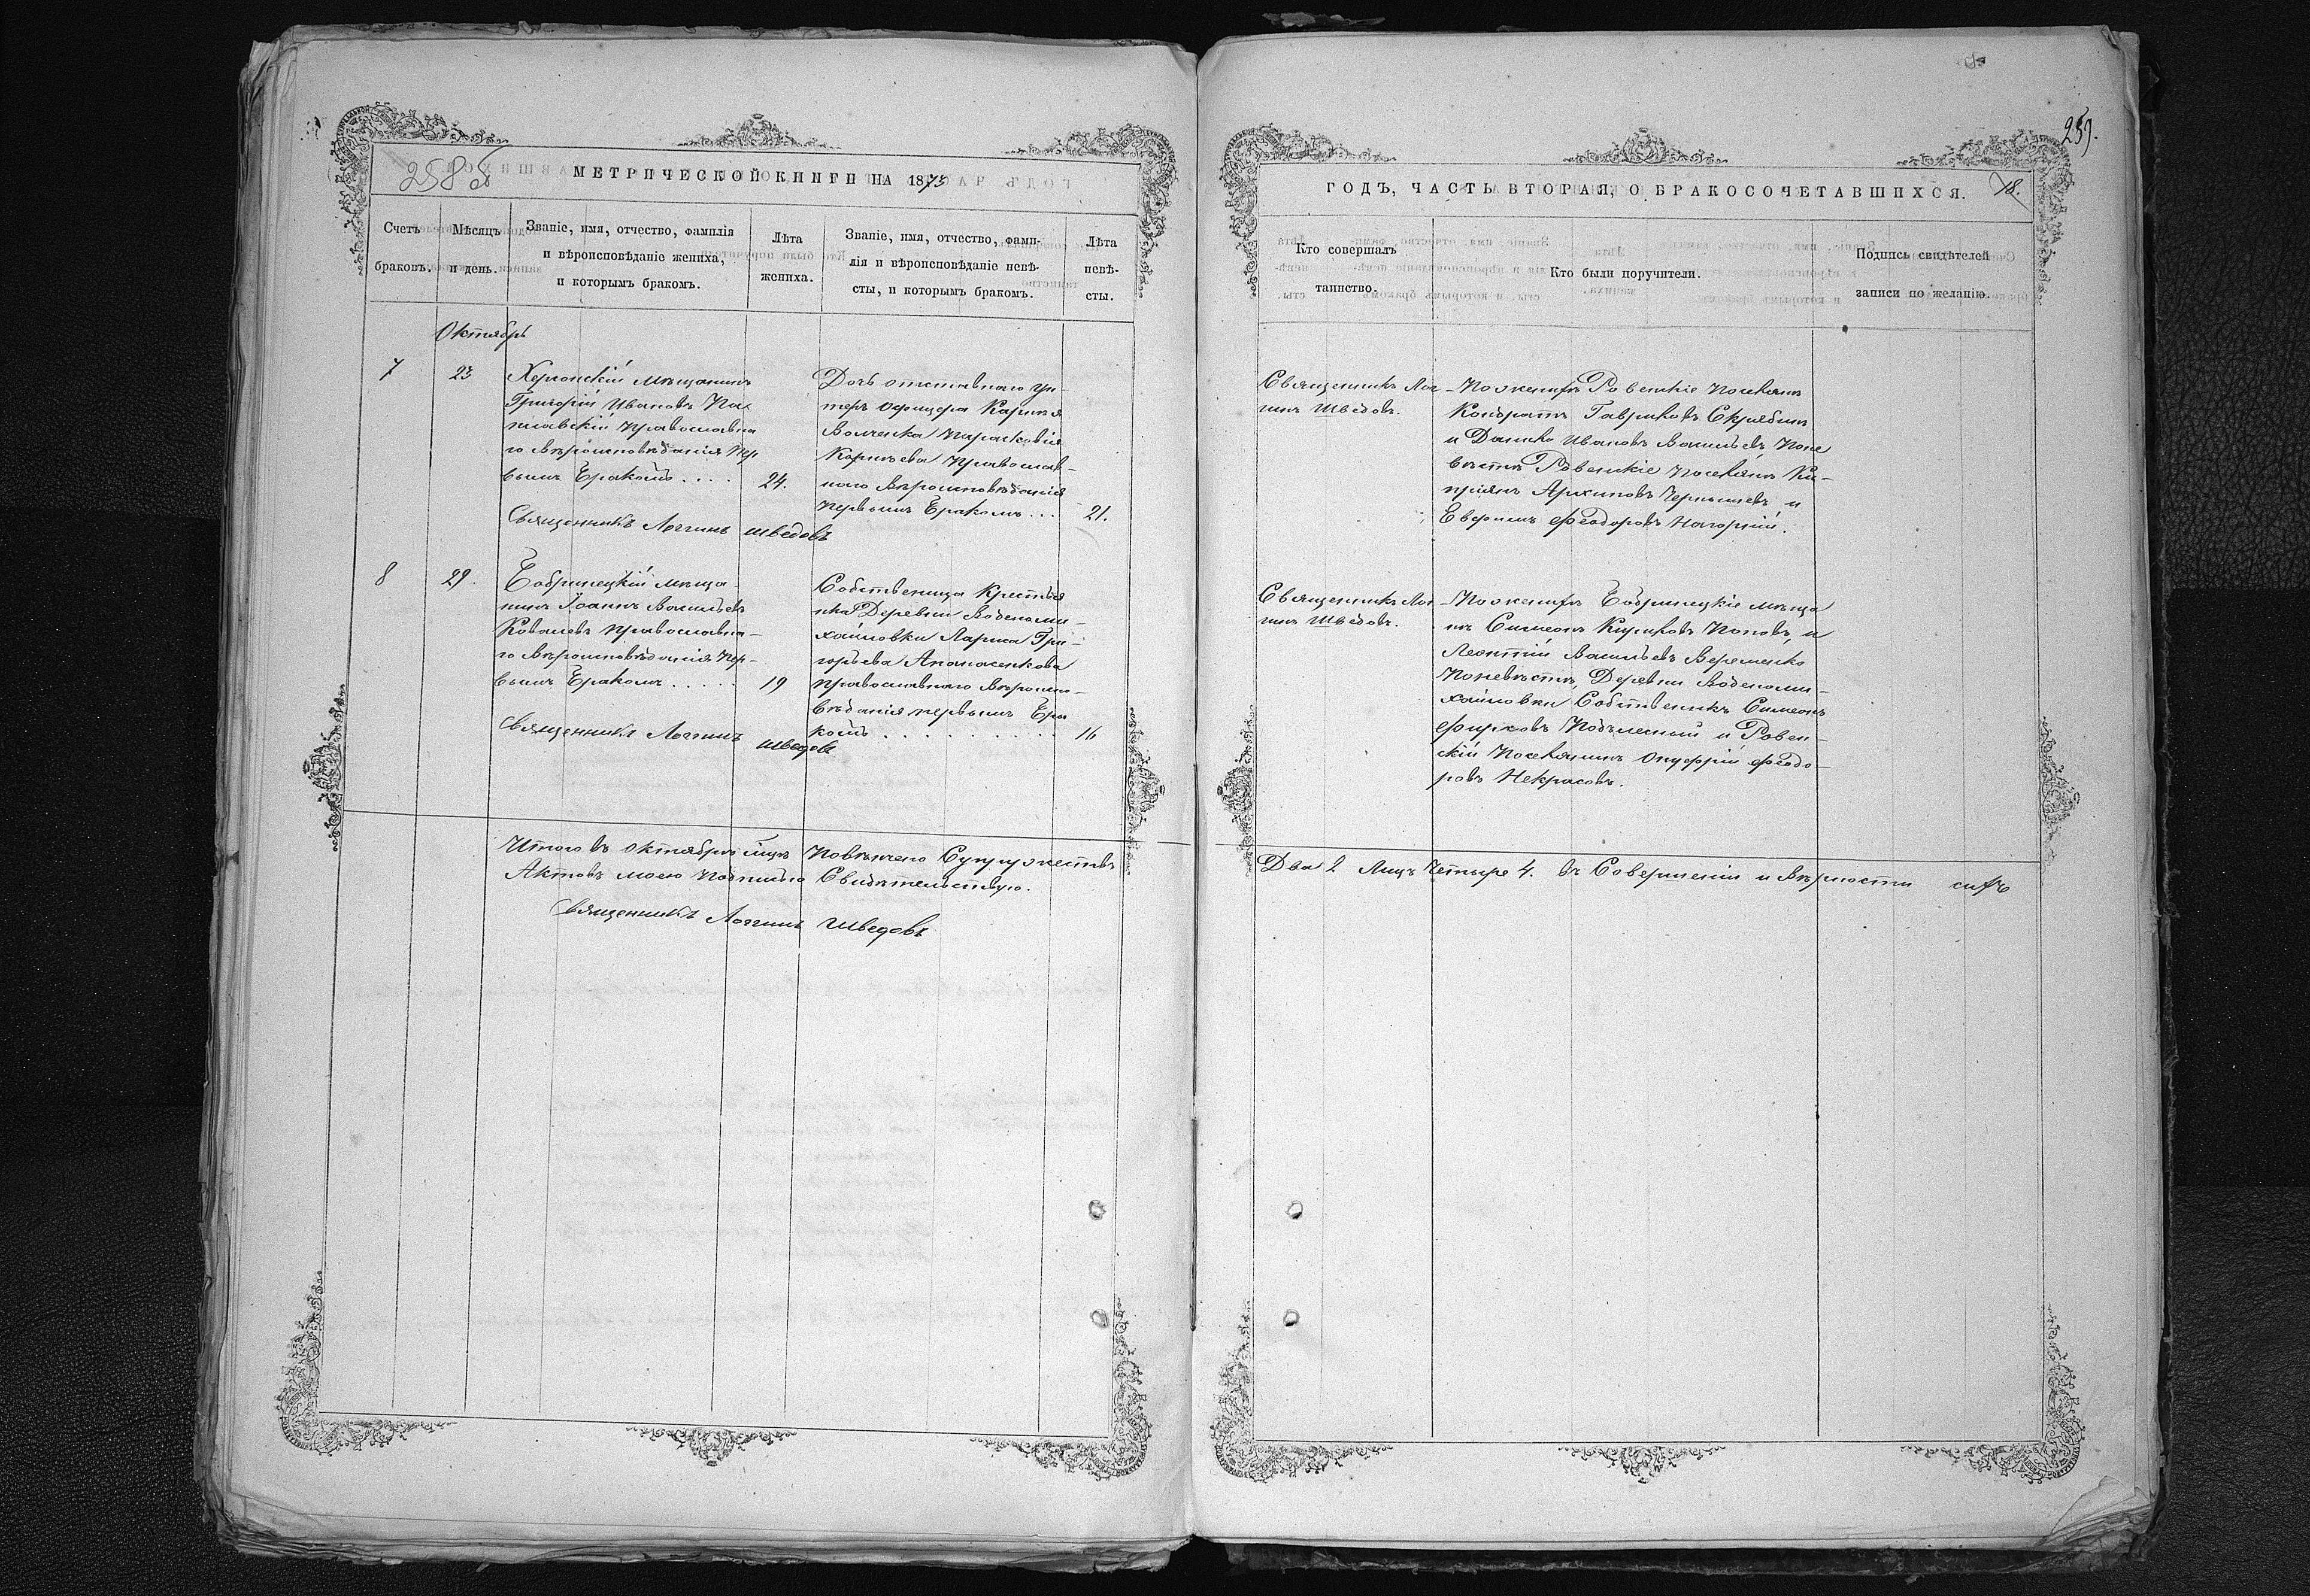 258 об
МЕТРИЧЕСКОЙ КНИГИ НА 1873
Счетъ браковъ.
Мѣсяцъ и день.
Званіе, имя, отчество, фамилія
и вѣроисповѣданіе жениха,
и которымъ бракомъ.
Лѣта
жениха.
Званіе, имя, отчество, фами-
лія и вѣроисповѣданіе невѣ-
сты, и которымъ бракомъ.
Лѣта
невѣ-
сты.
Октябрь
7
23
Херсонскій мѣщанинъ
Григорій Ивановъ
православна
го вѣроисповѣданія пер
вымъ бракомъ . . . .
24.
Дочь отставнаго ун-
теръ офицера
Парасковія
православ-
наго вѣроисповѣданія
первымъ бракомъ . . .
21.
Священникъ Логгинъ Шведовъ
8
29.
Бобринецкій мѣща-
нинъ Іоаннъ Васильевъ
Ковалевъ православна-
го вѣроисповѣданія пер-
вымъ бракомъ . . . . .
19
Собственица крестья
нка Деревни Водяноми-
хайловки Лариса Гри-
горьева Апанасенкова
православнаго вѣроиспо-
вѣданія первымъ бра
комъ . . . . . . . . . .
16
Священникъ Логгинъ Шведовъ
Итого въ октябрѣ мцѣ повѣнчено Супружествъ
Актовъ моею подписью Свидѣтельствую.
Священникъ Логгинъ Шведовъ
259.
ГОДЪ, ЧАСТЬ ВТОРАЯ, О БРАКОСОЧЕТАВШИХСЯ.
78.
Кто совершалъ
таинство.
Кто были поручители.
Подпись свидѣтелей
записи по желанію.
Священникъ Лог-
гинъ Шведовъ.
По женихѣ Ровенскіе поселяне
Кондратъ Гавриловъ Скрябинъ
и Данило Ивановъ Васильевъ, Поне
вѣстѣ Ровенскіе поселяне Ки-
пріянъ Архиповъ Чернышевъ и
Ефимъ Феодоровъ Нагорній.
Священникъ Лог-
гинъ Шведовъ.
По женихѣ Бобринецкіе мѣща
не Симеонъ Кириловъ Поповъ, и
Леонтій Васильевъ Веременко
Поневѣстѣ, Деревни Водяноми-
хайловки Собственикъ Симеонъ
Фирсовъ Подлесный и Ровен-
скій поселянинъ Онуфрій Феодо-
ровъ Некрасовъ.
Два 2 Лицъ Четыре 4. въ Совершеніи и вѣрности сихъ